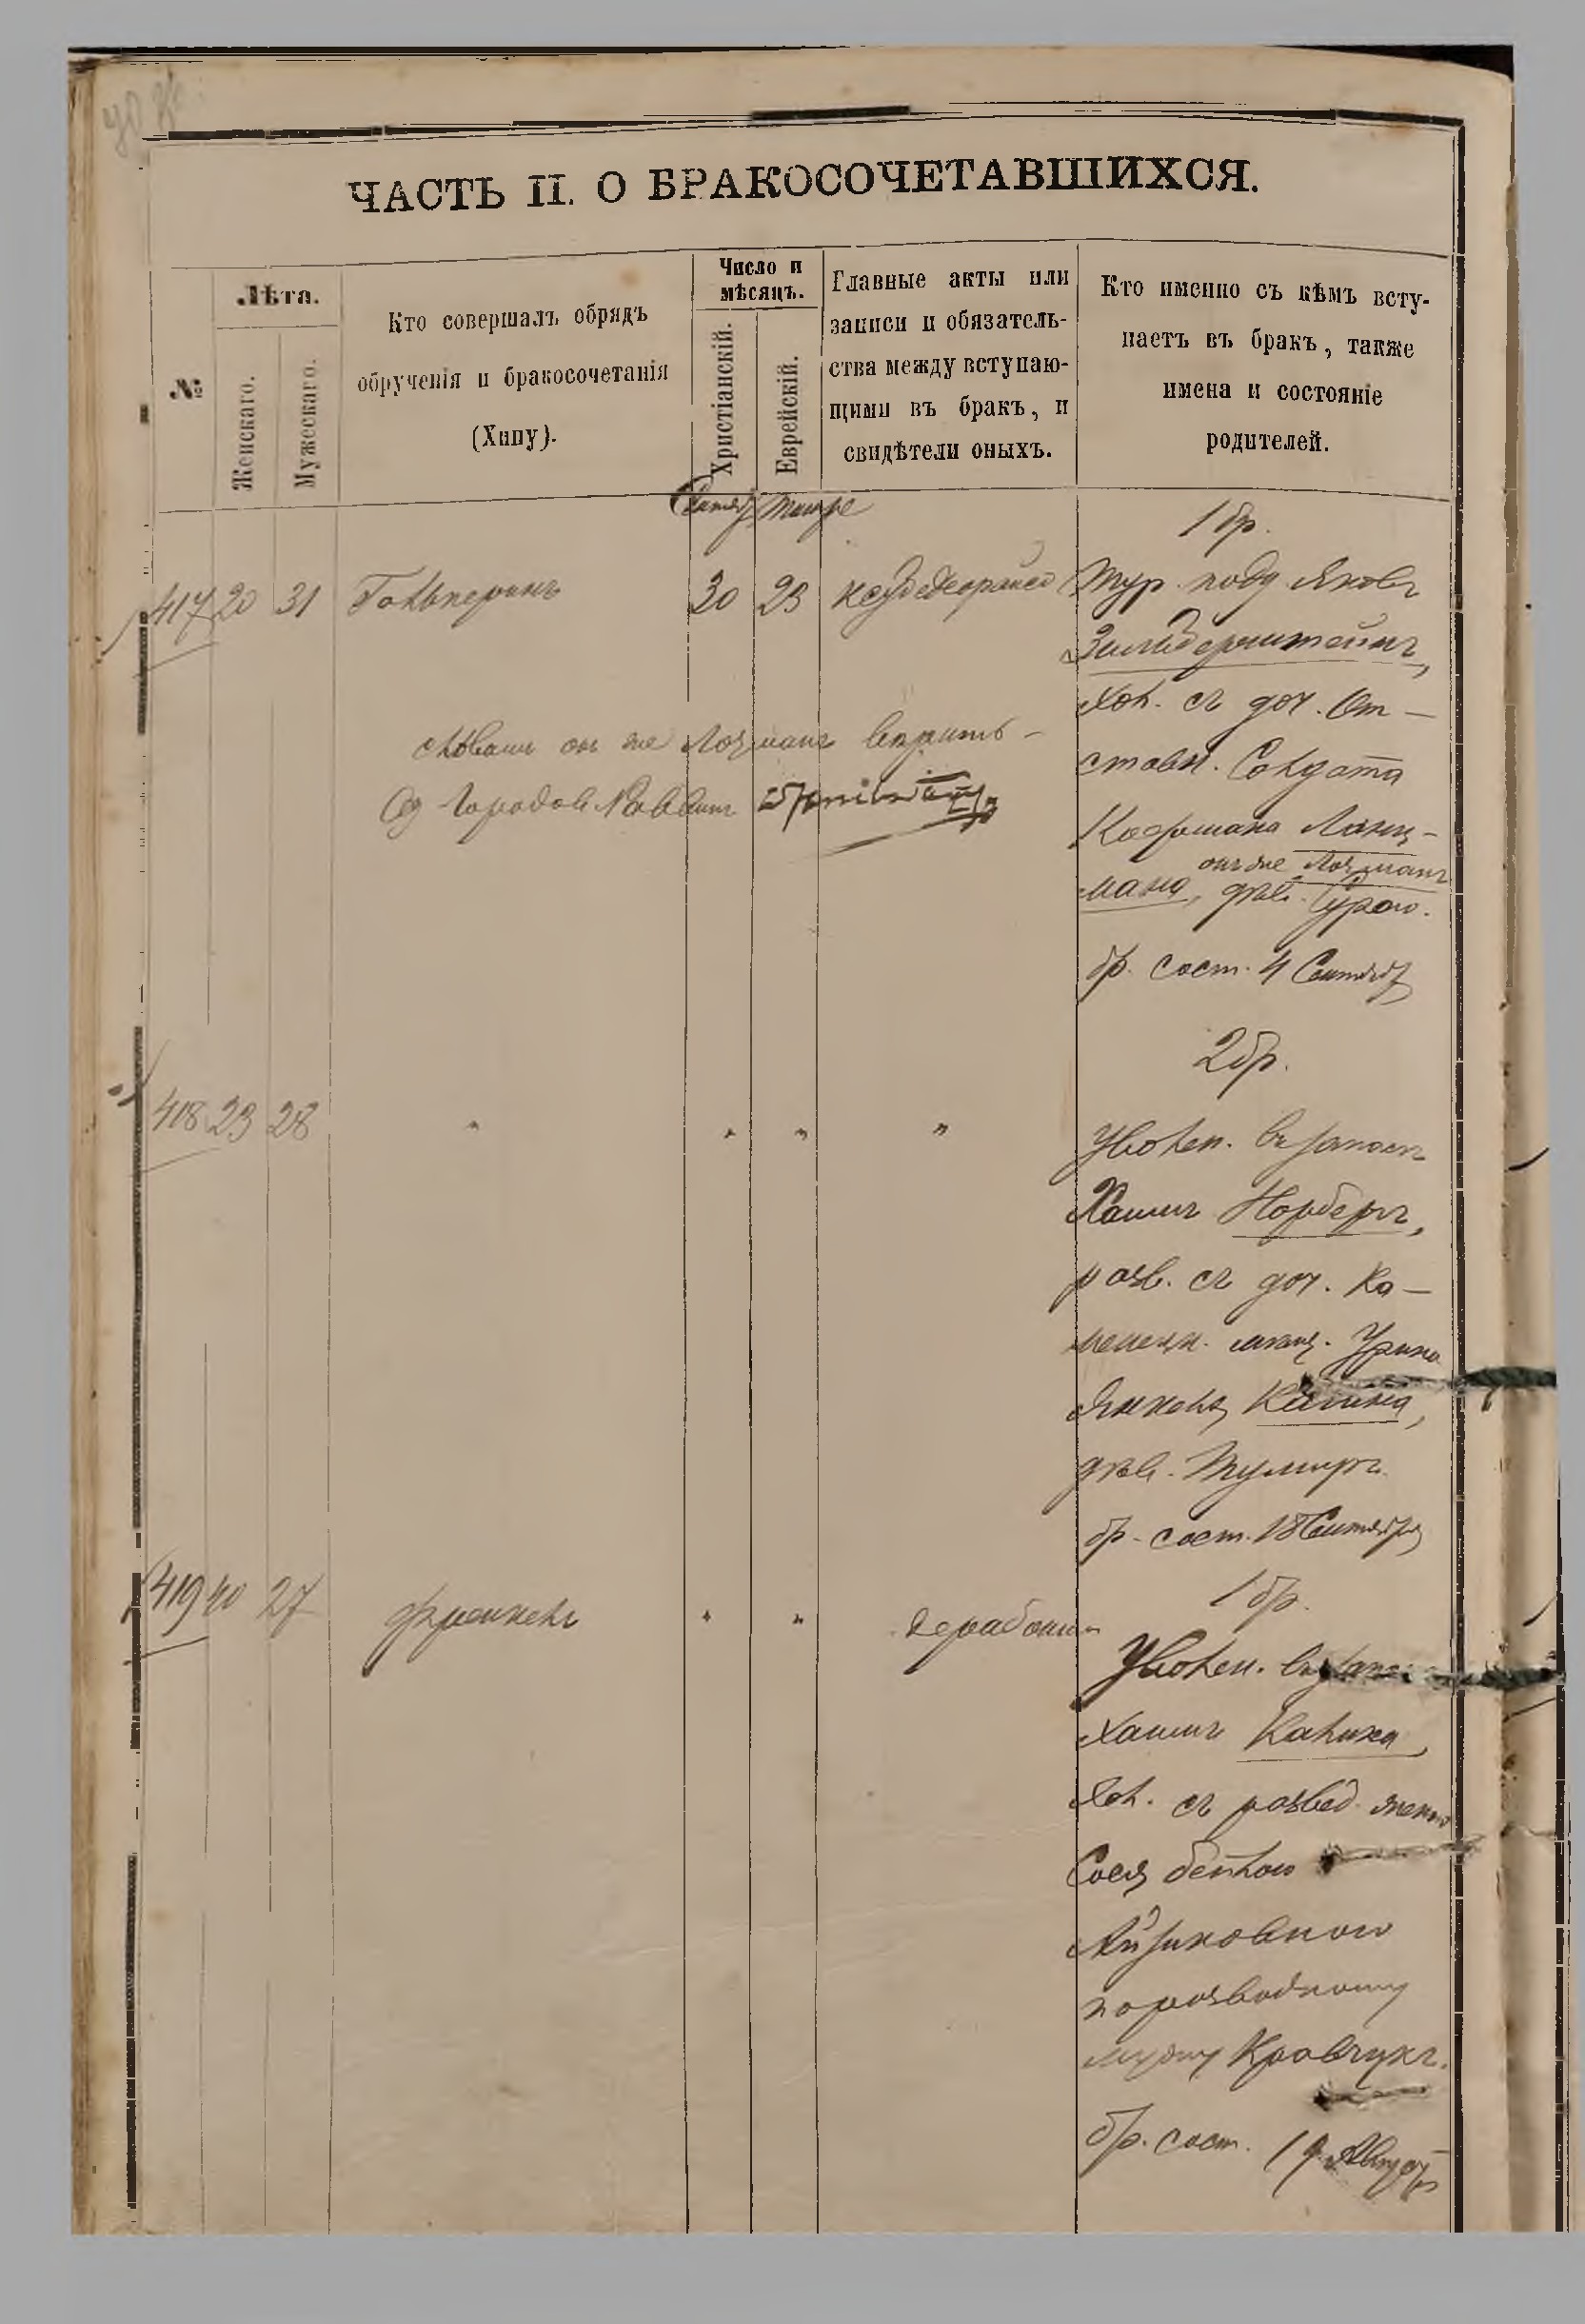 ЧАСТЬ II. О БРАКОСОЧЕТАВШИХСЯ.
№
Лѣта.
Женскаго.
Мужескаго.
Кто совершалъ обрядъ
обрученія и бракосочетанія
(Хипу).
Число и
мѣсяцъ.
Христіанскій.
Еврейскій.
Главные акты или
записи и обязатель-
ства между вступаю-
щими въ бракъ, и
свидѣтели оныхъ.
Кто именно съ кѣмъ всту-
паетъ въ бракъ, также
имена и состояніе
родителей.
Сентяб. Тишре
417 20 31 Гальперинъ 30 23
1 бр.
Тур. подд. Яковъ
Зильберштейнъ,
хол. съ доч. От-
ставн. Солдата
Лани-
онъ же Лохманъ
мана, дѣв. Сурою.
бр. сост. 4 Сентяб.
Слова он же Лохманъ вѣрить -
Од Городов Раввин
418 23 28 " " " "
2 бр.
Уволен. въ запасъ
Хаимъ Норберъ,
разв. съ доч. Ка-
менецк. мѣщ.
дѣв.
бр. сост. 18 Сентября
419 40 27 Френкель " "
1 бр.
Уволен. въ
Хаимъ Калика,
хол. съ развед. женою
Сося Бейлою
Айзиковною
по разводному
мужу Кравчукъ.
бр. сост. 19 Август